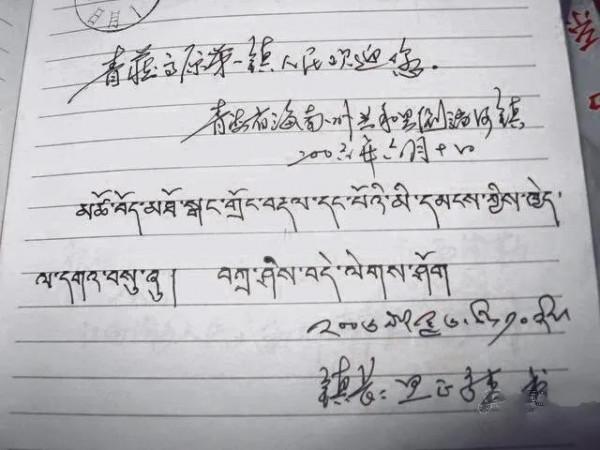 青藏高原第一镇人民欢迎您.
青海省海南州共和县倒淌河镇
年六月十
མཚོ་བོད་མཐོ་སྒང་གྲོང་བརྡལ་དང་པོའི་མི་དམངས་ཀྱིས་ཁྱེད་
ལ་དགའ་བསུ་ཞུ། བཀྲ་ཤིས་བདེ་ལེགས་ཤོག
镇长: